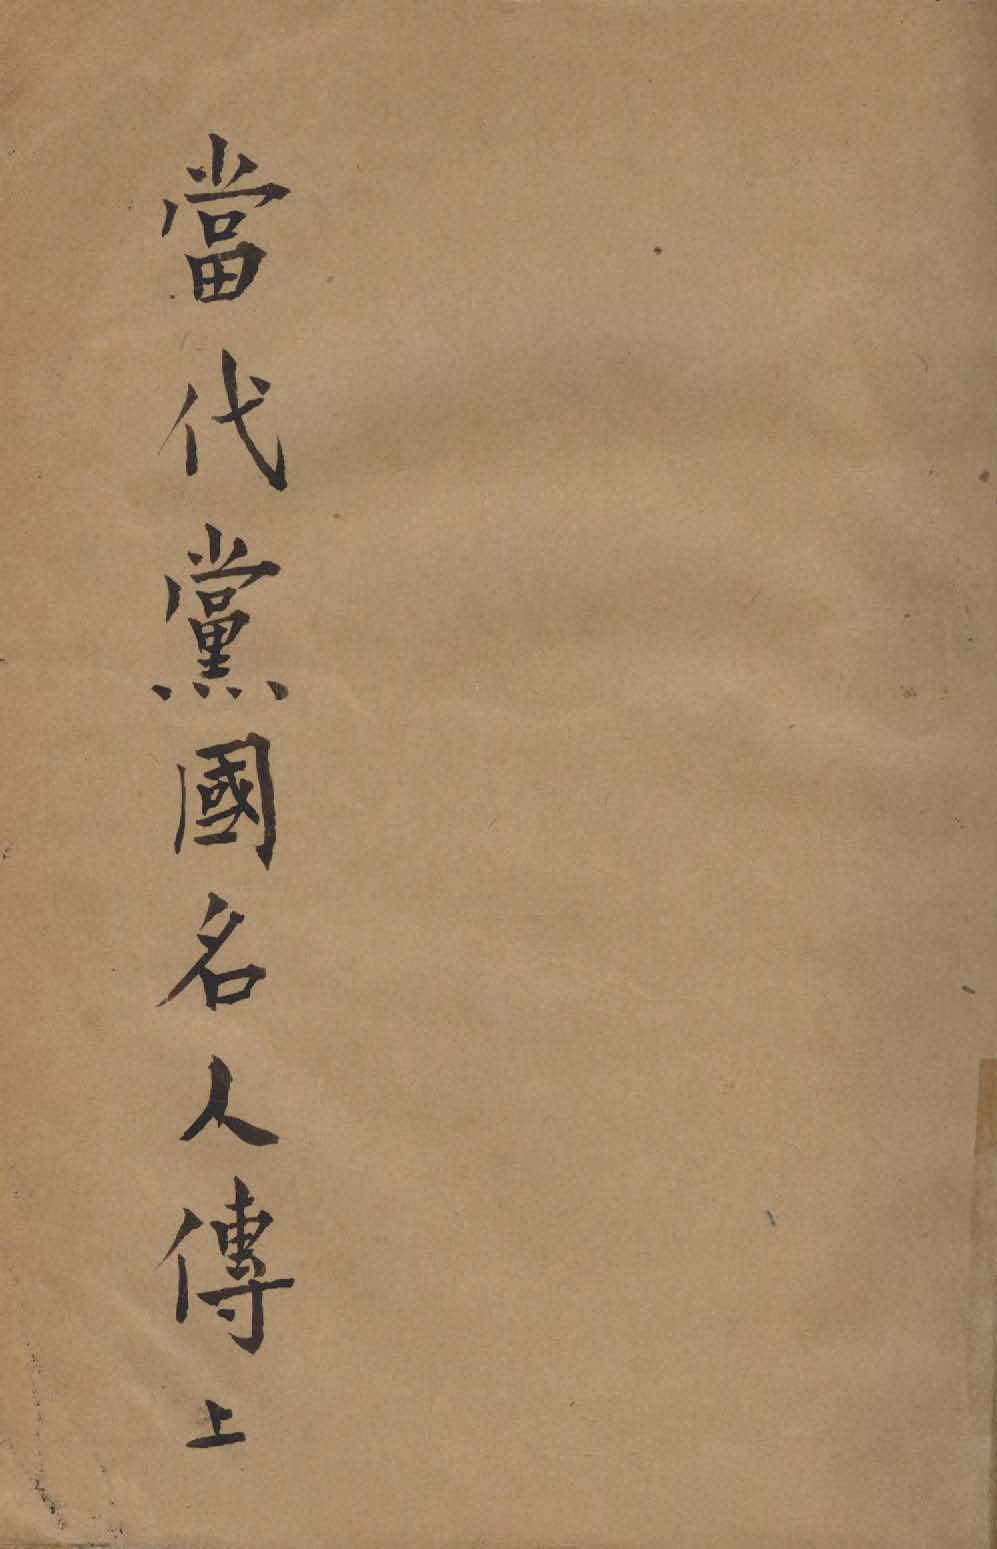 當代黨國名人傳上